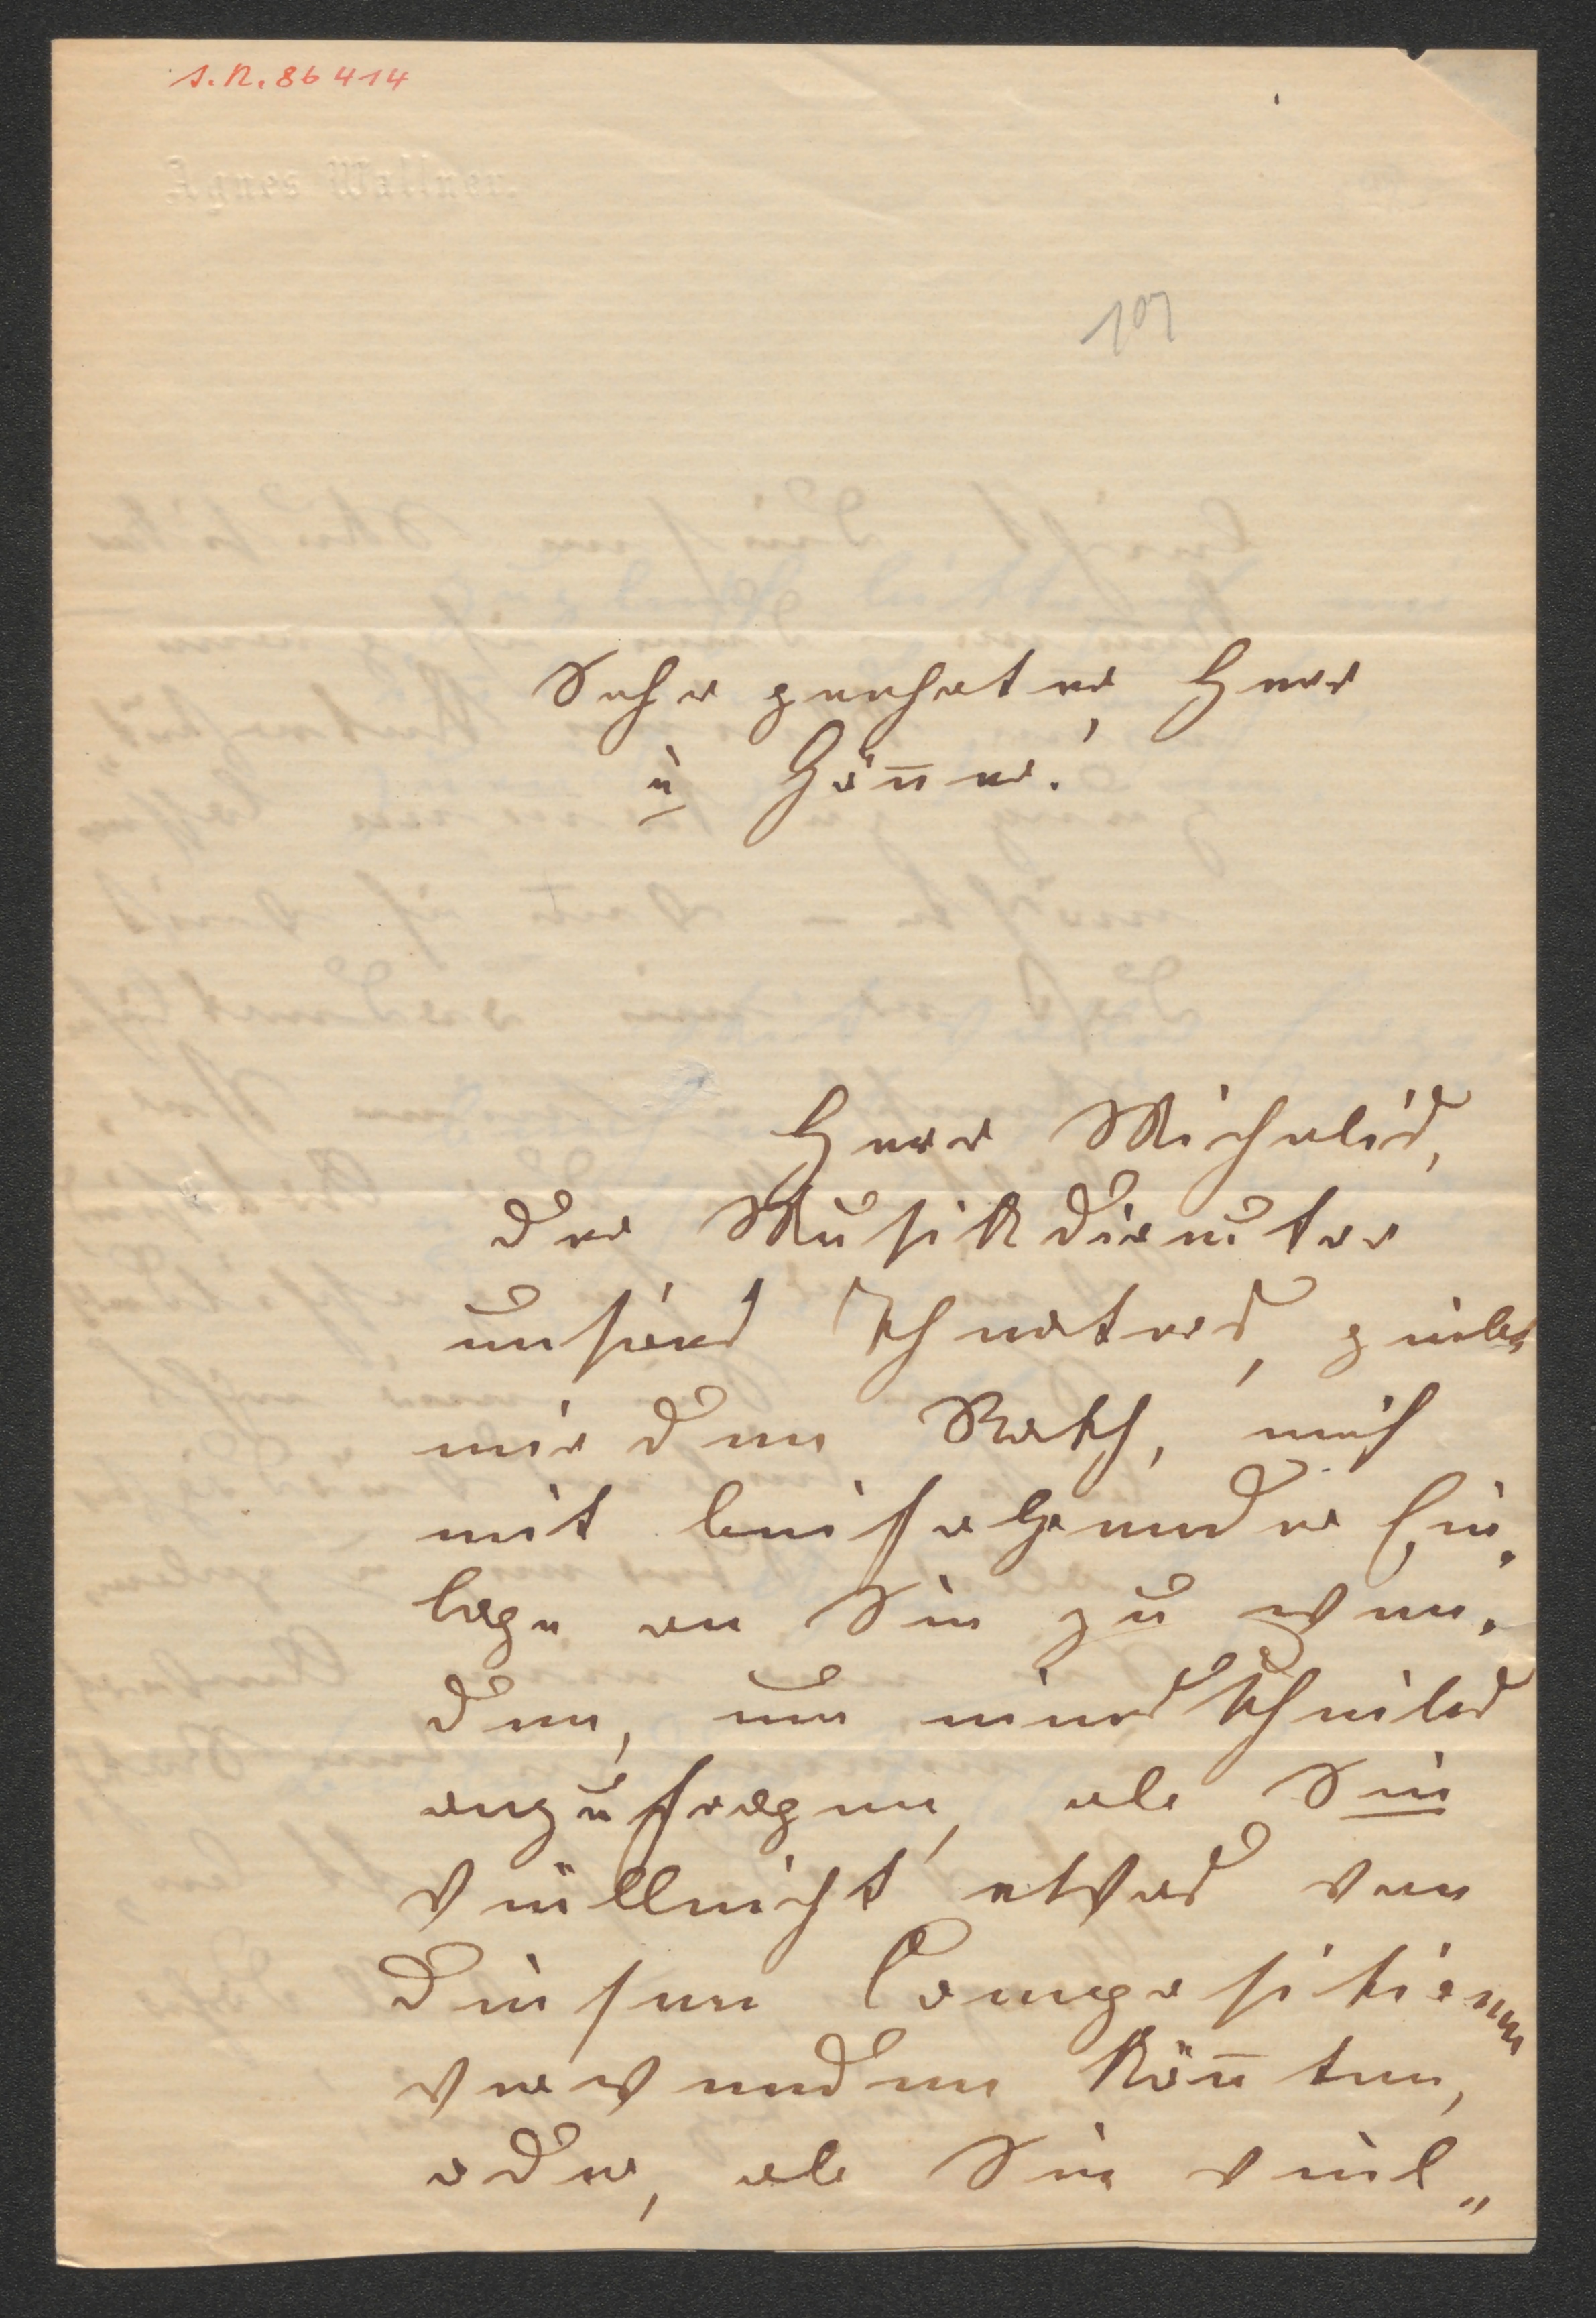 s. n. 86 414
Agnes Wallner.
107
Sehr geehrter Herr
u Gönner!
Herr Michalis,
der Musikdirector
unseres Theaters, giebt
mir den Rath, mich
mit beifolgender Ein-
lage an Sie zu wen-
den, um eines Theiles
anzufragen, ob Sie
vielleicht etwas von
diesen Compositionen
verwenden könnten,
oder, ob Sie viel„